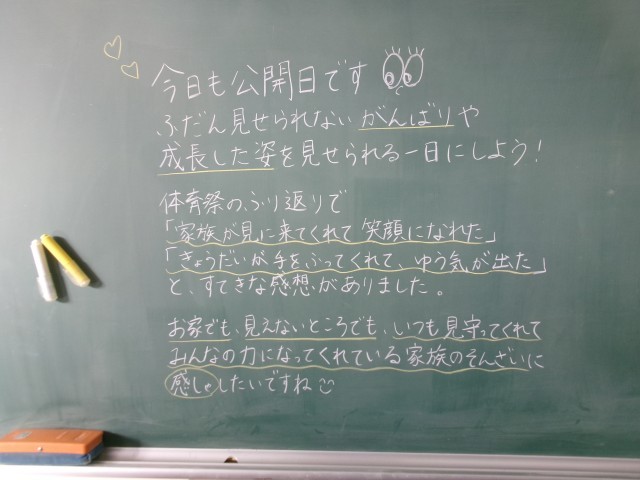 今日も公開日です
ふだん見せられないがんばりや
成長した姿を見せられる一日にしよう!
体育祭のふり返りで
「家族が見に来てくれて笑顔になれた」
「きょうだいが手をふってくれて、ゆう気が出た」
と、すてきな感想がありました。
お家でも、見えないところでも、いつも見守ってくれて
みんなの力になってくれている家族のそんざいに
感しゃしたいですね